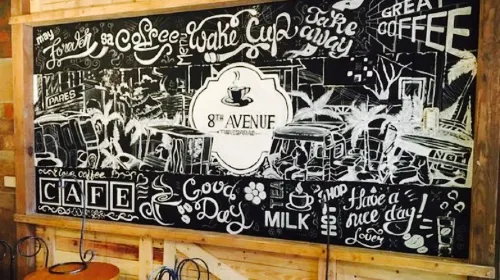 may Forever sa Coffee
Wake Cup
Take away
GREAT COFFEE
PARES
8TH AVENUE
time coffee
CAFE
Good Day
TEA
MILK
SHOP
HOT
Have a nice day!
Lovely